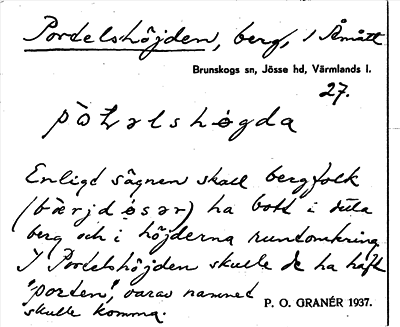 Portelshöjden, berg, i Åmått
Brunskogs sn, Jösse hd, Värmlands l.
27.
pòtəlshøgda
Enligt sägnen skall bergfolk
(bærjdøsər) ha bott i detta
berg och i höjderna runtomkring
I Portelshöjden skulle de ha haft
"porten", varav namnet
skulle komma.
P. O. GRANÉR 1937.